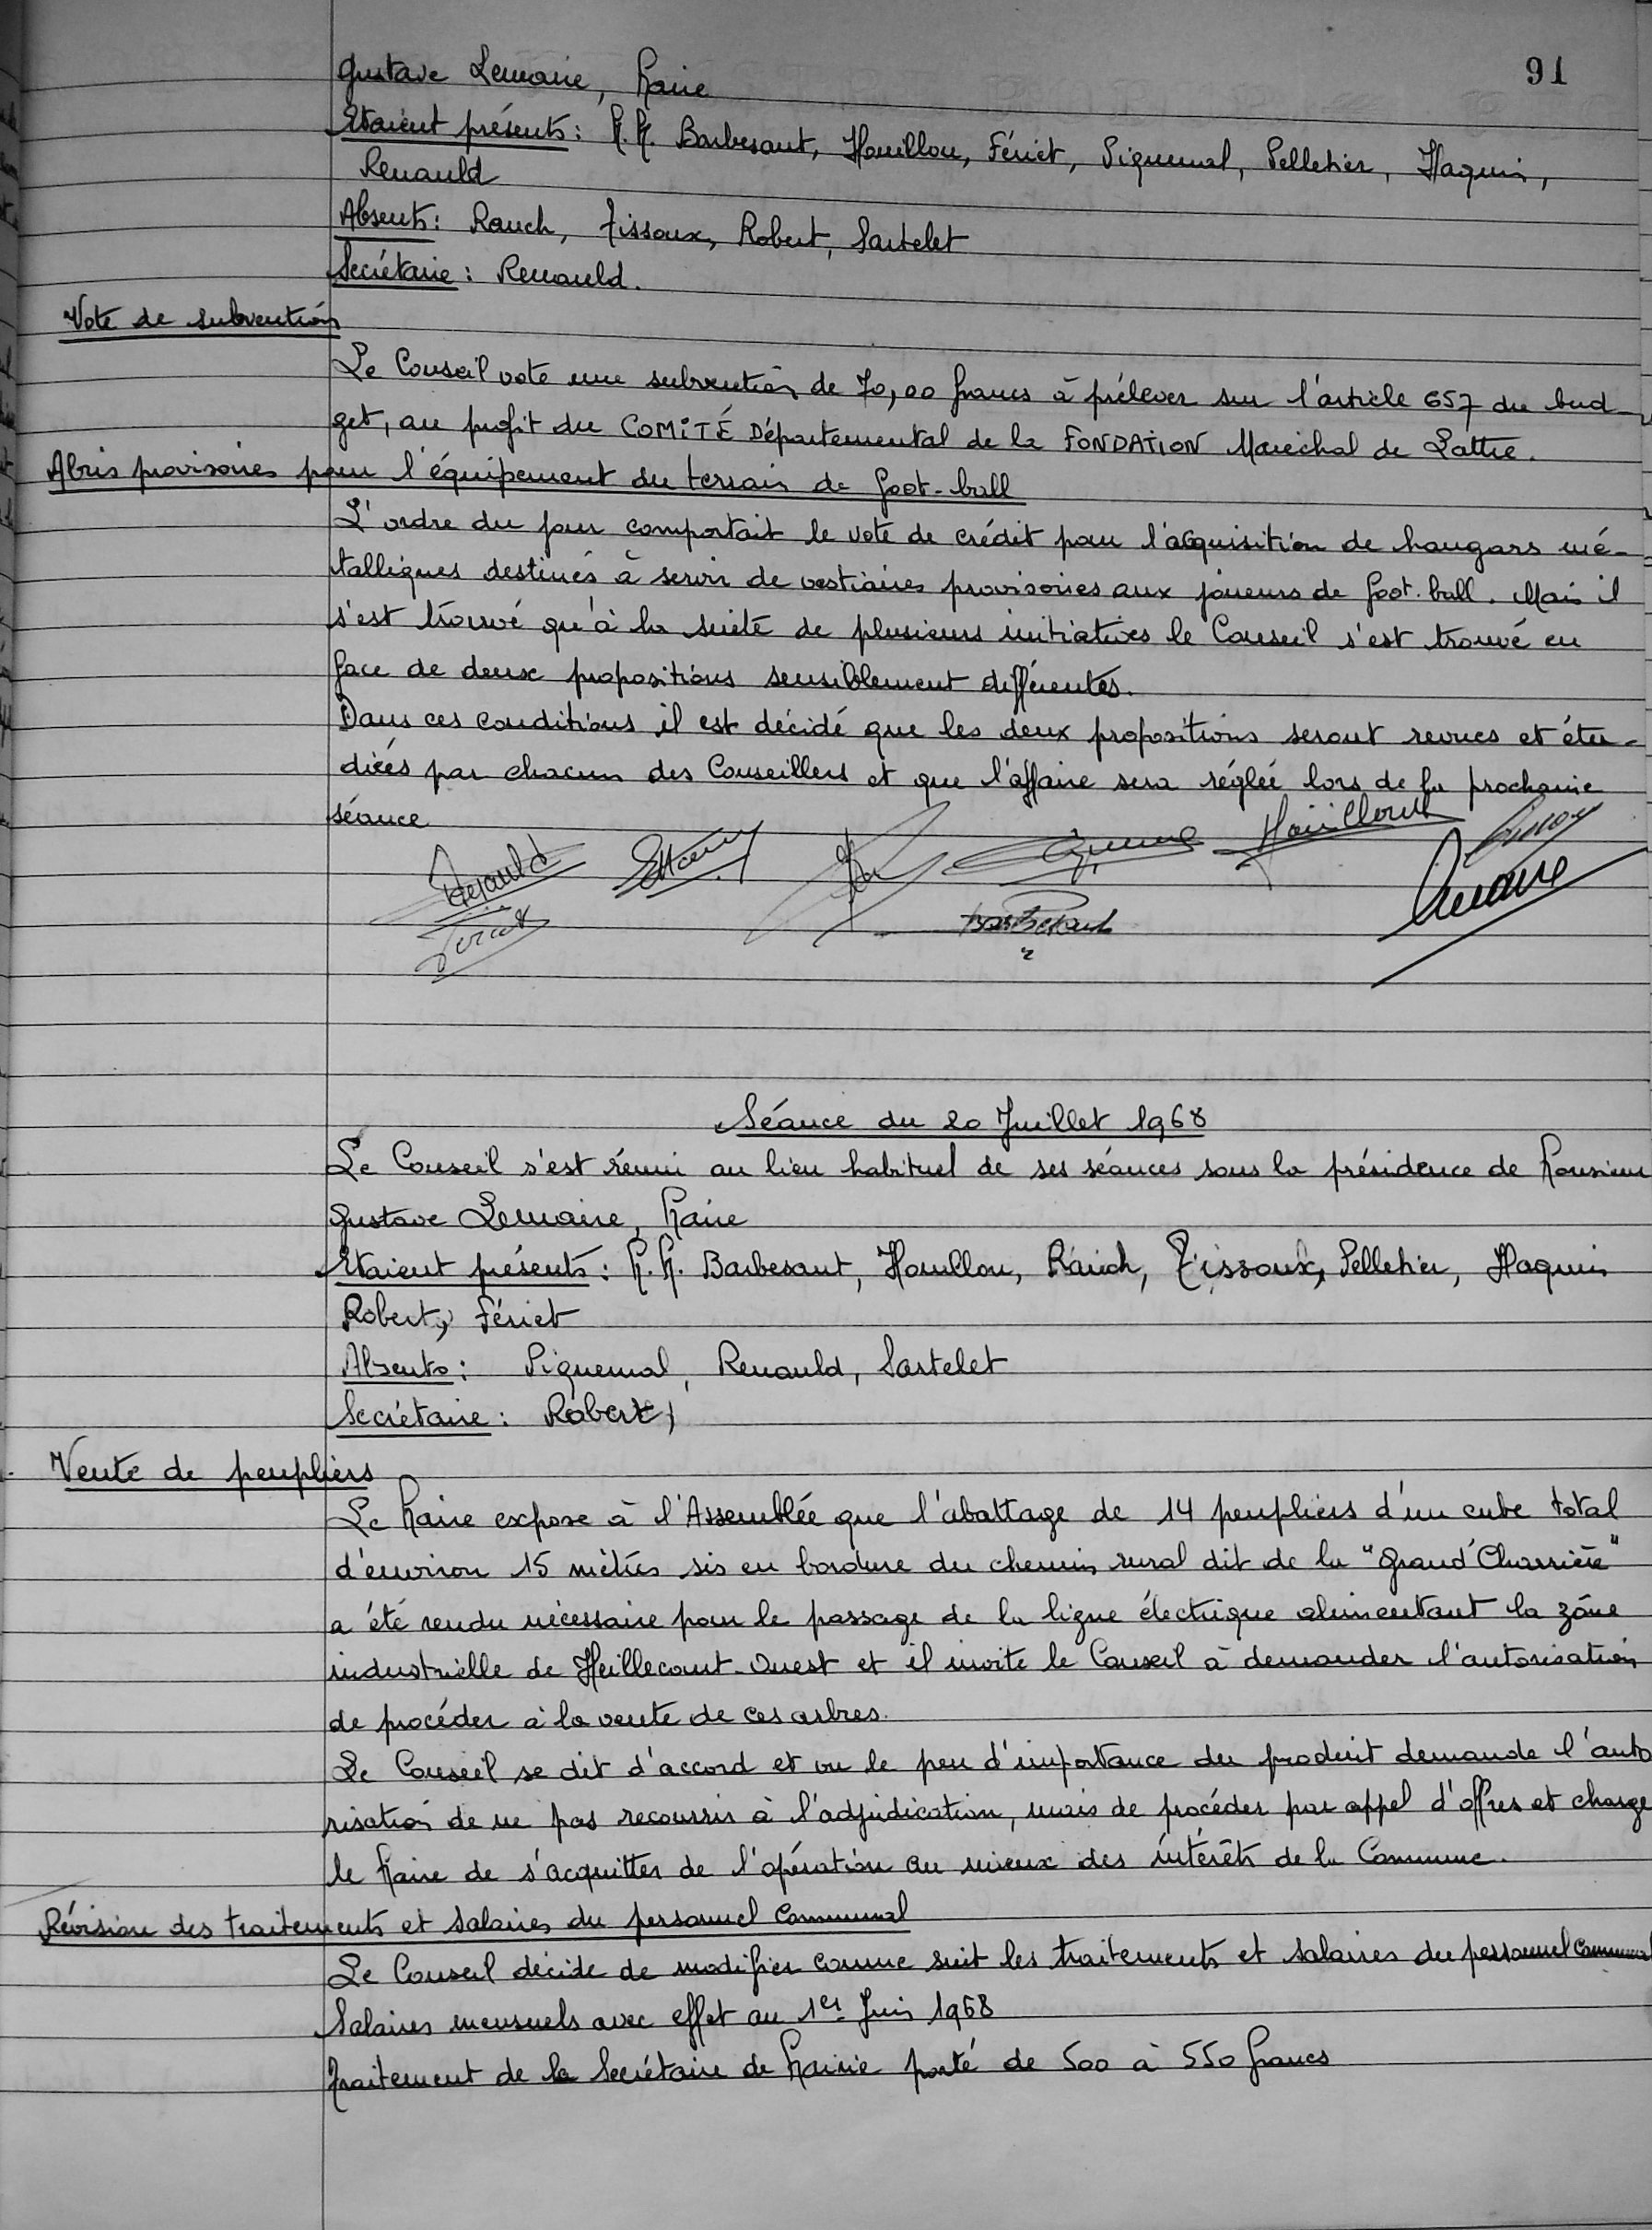 91
Gustave Lemaire, Maire
Etaient présents: M.M. Barbesant, Houillon, Fériet, Piquemal, Pelletier, Haquin,
Renauld
Absents: Rauch, Tissoux, Robert, Sartelet
Secrétaire: Renauld.
Vote de subvention
Le Conseil vote une subvention de 70,00 francs à prélever sur l'article 657 du bud-
get, au profit du COMITÉ Départemental de la FONDATION Maréchal de Lattre.
Abris provisoires pour l'équipement du terrain de foot-ball
L'ordre du jour comportait le vote de crédit pour l'acquisition de hangars mé-
talliques destinés à servir de vestiaires provisoires aux joueurs de foot-ball. Mais il
s'est trouvé qu'à la suite de plusieurs initiatives le Conseil s'est trouvé en
face de deux propositions sensiblement différentes.
Dans ces conditions il est décidé que les deux propositions seront revues et étu-
diées par chacun des Conseillers et que l'affaire sera réglée lors de la prochaine
séance
Renauld Houillon
Fériet Barbesant Lemaire
Séance du 20 Juillet 1968
Le Conseil s'est réuni au lieu habituel de ses séances sous la présidence de Monsieur
Gustave Lemaire, Maire
Etaient présents: M.M. Barbesant, Houillon, Rauch, Tissoux, Pelletier, Haquin
Robert, Fériet
Absents: Piquemal, Renauld, Sartelet
Secrétaire: Robert,
Vente de peupliers
Le Maire expose à l'Assemblée que l'abattage de 14 peupliers d'un cube total
d'environ 15 mètres sis en bordure du chemin rural dit de la "Grand'Charrière"
a été rendu nécessaire pour le passage de la ligne électrique alimentant la zône
industrielle de Heillecourt-Ouest et il invite le Conseil à demander l'autorisation
de procéder à la vente de ces arbres.
Le Conseil se dit d'accord et vu le peu d'importance du produit demande l'auto
risation de ne pas recourrir à l'adjudication, mais de procéder par appel d'offres et charge
le Maire de s'acquitter de l'opération au mieux des intérêts de la Commune.
Révision des traitements et salaires du personnel Communal
Le Conseil décide de modifier comme suit les traitements et salaires du personnel Communal
Salaires mensuels avec effet au 1er Juin 1968
Traitement de la Secrétaire de Mairie porté de 500 à 550 francs